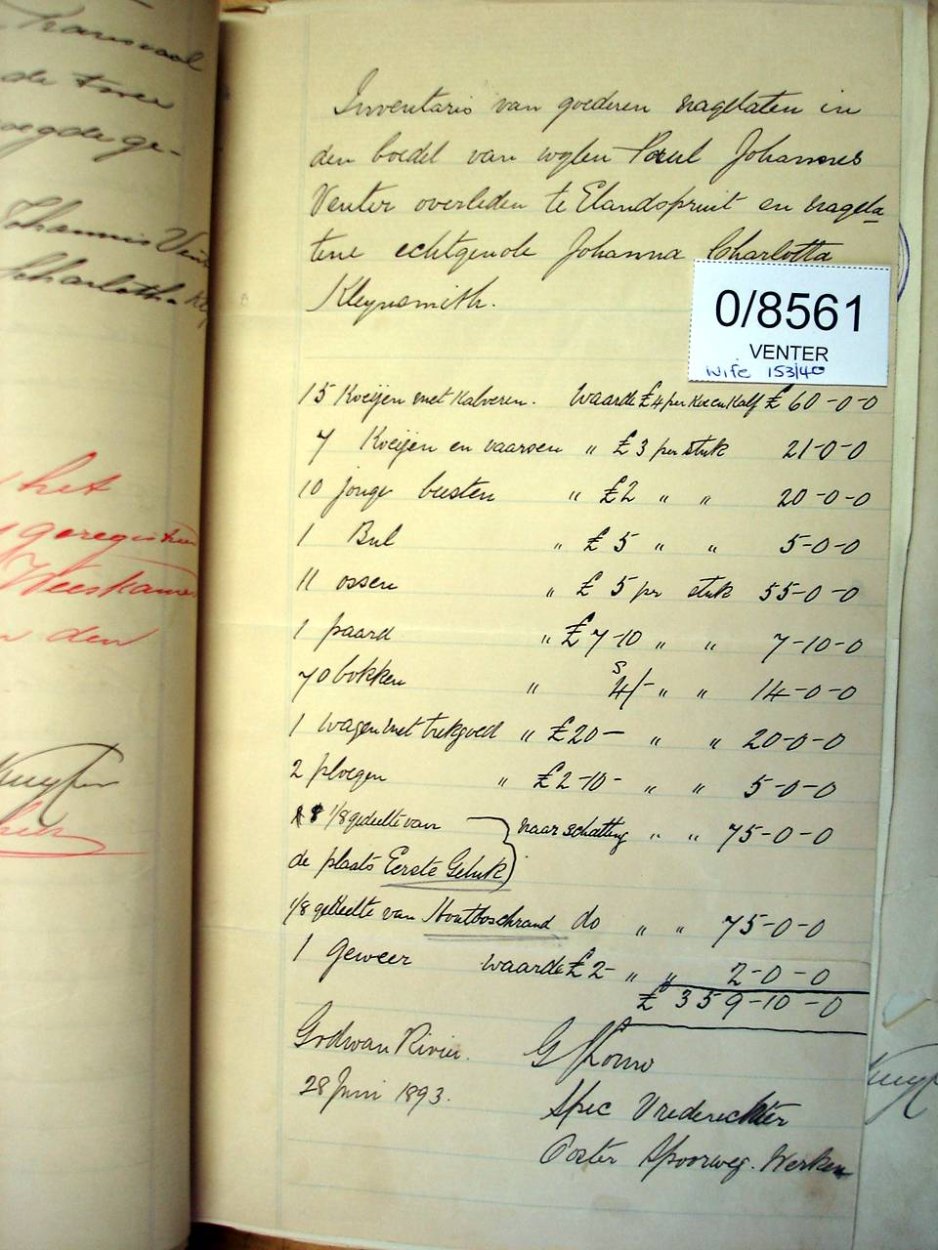 Transvaal
de twee
oegde ge-
Johannis
Charlotha
het
geregistreer
Weeskamer
den
Inventaris van goederen nagelaten in
den boedel van wylen Paul Johannes
Venter overleden te Elandspruit en nagela
tene echtgenote Johanna Charlotta
Kleynsmith.
0/8561
VENTER
Wife 153/40
15 Koeijen met Kalveren. Waarde £4 per Koe en Kalf £ 60-0-0
7 Koeijen en vaarsen " £3 per stuk 21-0-0
10 jonge beesten " £2 " " 20-0-0
1 Bul " £5 " " 5-0-0
11 ossen " £ 5 per stuk 55-0-0
1 paard " £7-10 " " 7-10-0
70 bokken " s 4/- " " 14-0-0
1 wagen met trekgoed " £20- " " 20-0-0
2 ploegen " £2-10- " " 5-0-0
1/8 gedeelte van naar schatting " " 75-0-0
de plaats Eerste Geluk
1/8 gedeelte van Houtboschrand do " " 75-0-0
1 geweer waarde £2- " " 2-0-0
£ 359-10-0
Godwan Rivier.
28 Juni 1893.
Spec Vrederechter
Ooster Spoorweg. Werken